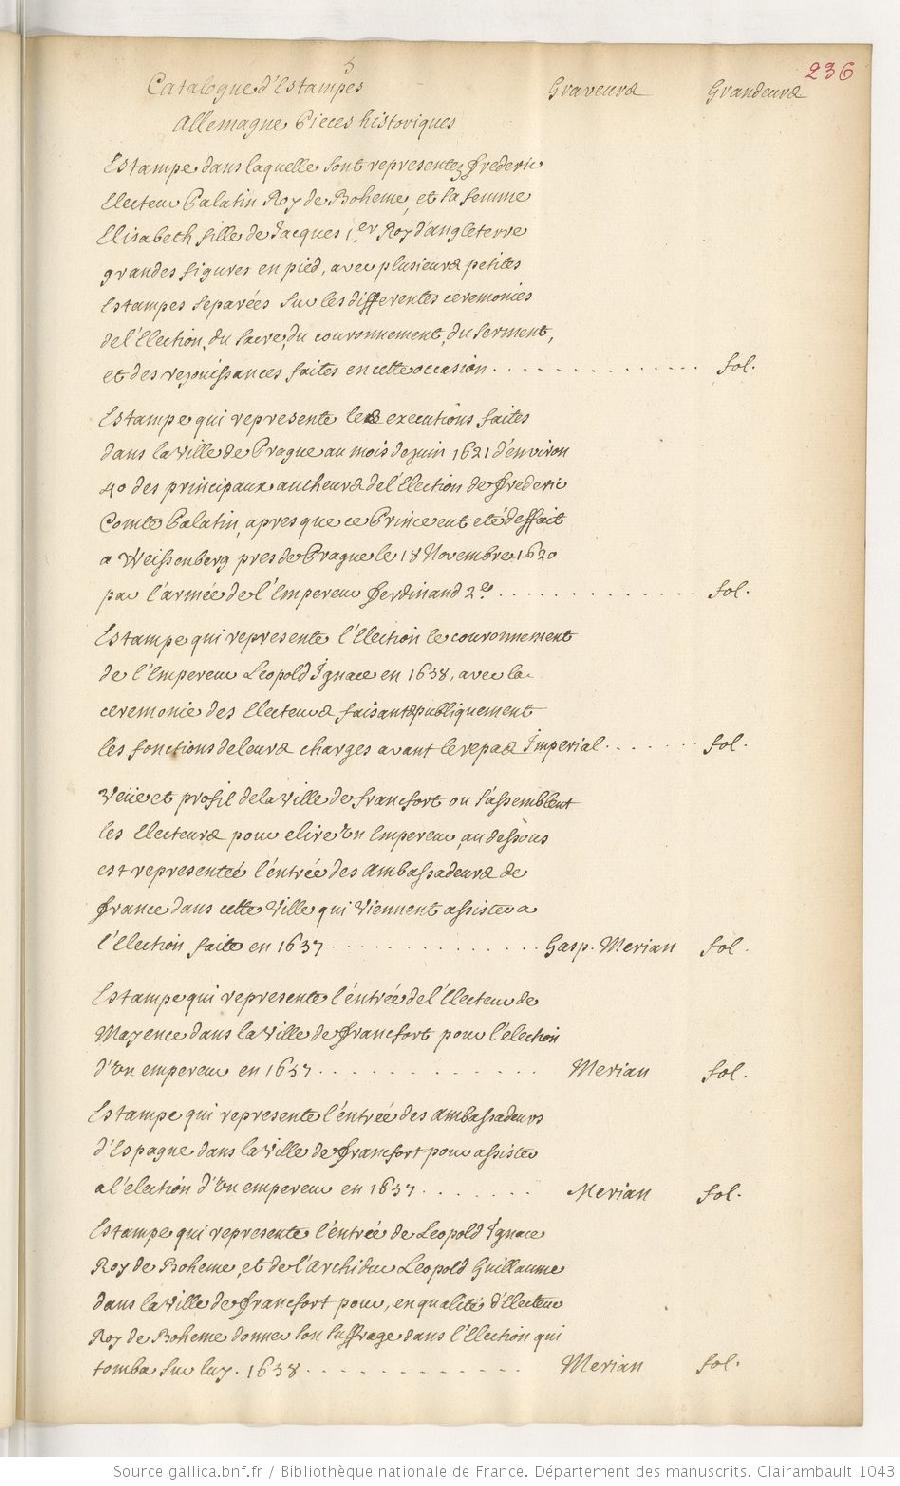 5
236
Catalogue d'Estampes Graveurs Grandeurs
Allemagne Pieces historiques
Estampe dans laquelle sont representez frederic
Electeur Palatin Roy de Boheme, et sa femme
Elisabeth fille de Jacques 1.er Roy d'angleterre
grandes figures en pied, avec plusieurs petites
Estampes separées sur les differentes ceremonies
de l'Election, du sacre, du couronnement, du serment,
et des rejouissances faites en cette occasion . . . . . . . . . . . . . . fol.
Estampe qui represente les executions faites
dans la Ville de Prague au mois de juin 1621 d'environ
40 des principaux autheurs de l'Election de frederic
Comte Palatin, apres que ce Prince eut eté deffait
a Weissenberg pres de Prague le 18 Novembre 1620
par l'armée de l'Empereur Ferdinand 2e . . . . . . . . . . . . . fol.
Estampe qui represente l'Election le couronnement
de l'Empereur Leopold Ignace en 1658, avec la
ceremonie des Electeurs faisants publiquement
les fonctions de leurs charges avant le repas Imperial . . . . . . fol.
Veüe et profil de la Ville de francfort ou s'assemblent
les Electeurs pour elire Un Empereur, au dessous
est representeé l'entrée des ambassadeurs de
france dans cette Ville qui Viennent assister a
l'Election faite en 1657 . . . . . . . . . . . . . . Gasp. Merian fol.
Estampe qui represente l'entrée de l'Electeur de
Mayence dans la Ville de francfort pour l'election
d'Un empereur en 1657 . . . . . . . . . . . . Merian fol.
Estampe qui represente l'entrée des ambassadeurs
d'Espagne dans la Ville de francfort pour assister
a l'election d'Un empereur en 1657 . . . . . . . Merian fol.
Estampe qui represente l'entrée de Leopold Ignace
Roy de Boheme, et de l'archiduc Leopold Guillaume
dans la Ville de francfort pour, en qualité d'Electeur
Roy de Boheme donner son suffrage dans l'Election qui
tomba sur luy. 1658 . . . . . . . . . . . . Merian fol.
Source gallica.bnf.fr / Bibliothèque nationale de France. Département des manuscrits. Clairambault 1043